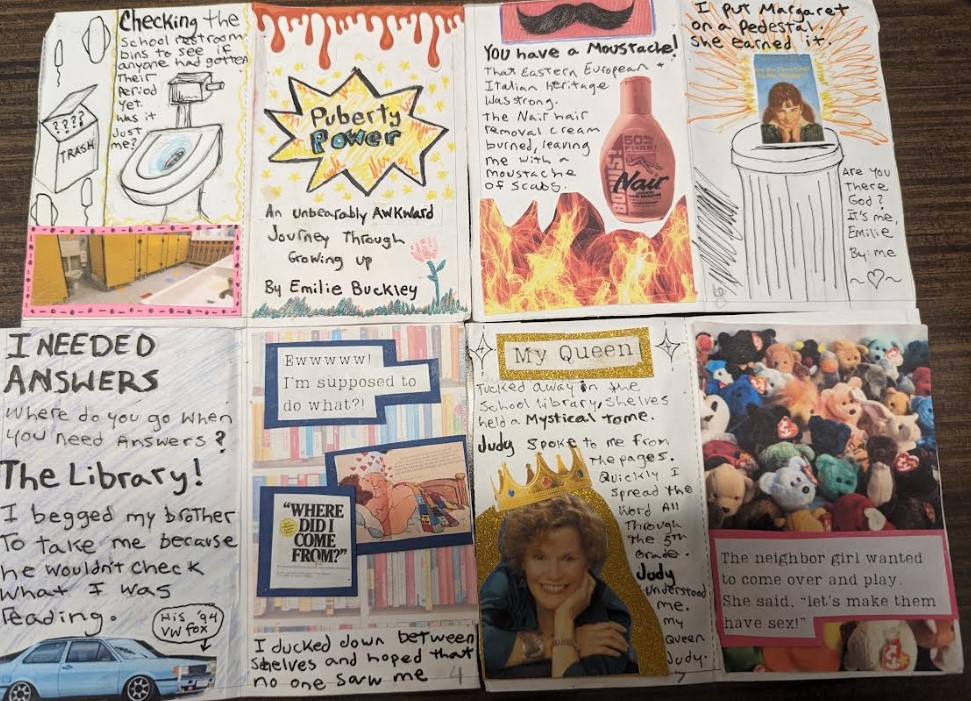 Checking the
School restroom
bins to see if
anyone had gotten
Their
Period
Yet.
was it
Just
me?
????
TRASH
Puberty
Power
An unbearably Awkward
Journey Through
Growing up
By Emilie Buckley
You have a Moustache!
That Eastern European +
Italian heritage
was strong.
the Nair hair
removal cream
burned, leaving
me with a
moustache
of scabs.
50%
Nair
I put Margaret
on a Pedestal.
She earned it.
Are You
There
God?
It's me,
Emilie
By: me
I NEEDED
ANSWERS
Where do you go when
you need Answers?
The Library!
I begged my brother
To take me because
he wouldn't check
what I was
reading.
His '94
VW fox
Ewwwww!
I'm supposed to
do what?!
"WHERE
DID I
COME
FROM?"
I ducked down between
shelves and hoped that
no one saw me
4
My Queen
Tucked away in the
School library, Shelves
held a Mystical Tome.
Judy spoke to me from
the pages.
Quickly I
spread the
word All
Through
the 5th
Grade.
Judy
understood
me.
my
Queen
Judy.
7
The neighbor girl wanted
to come over and play.
She said, "let's make them
have sex!"